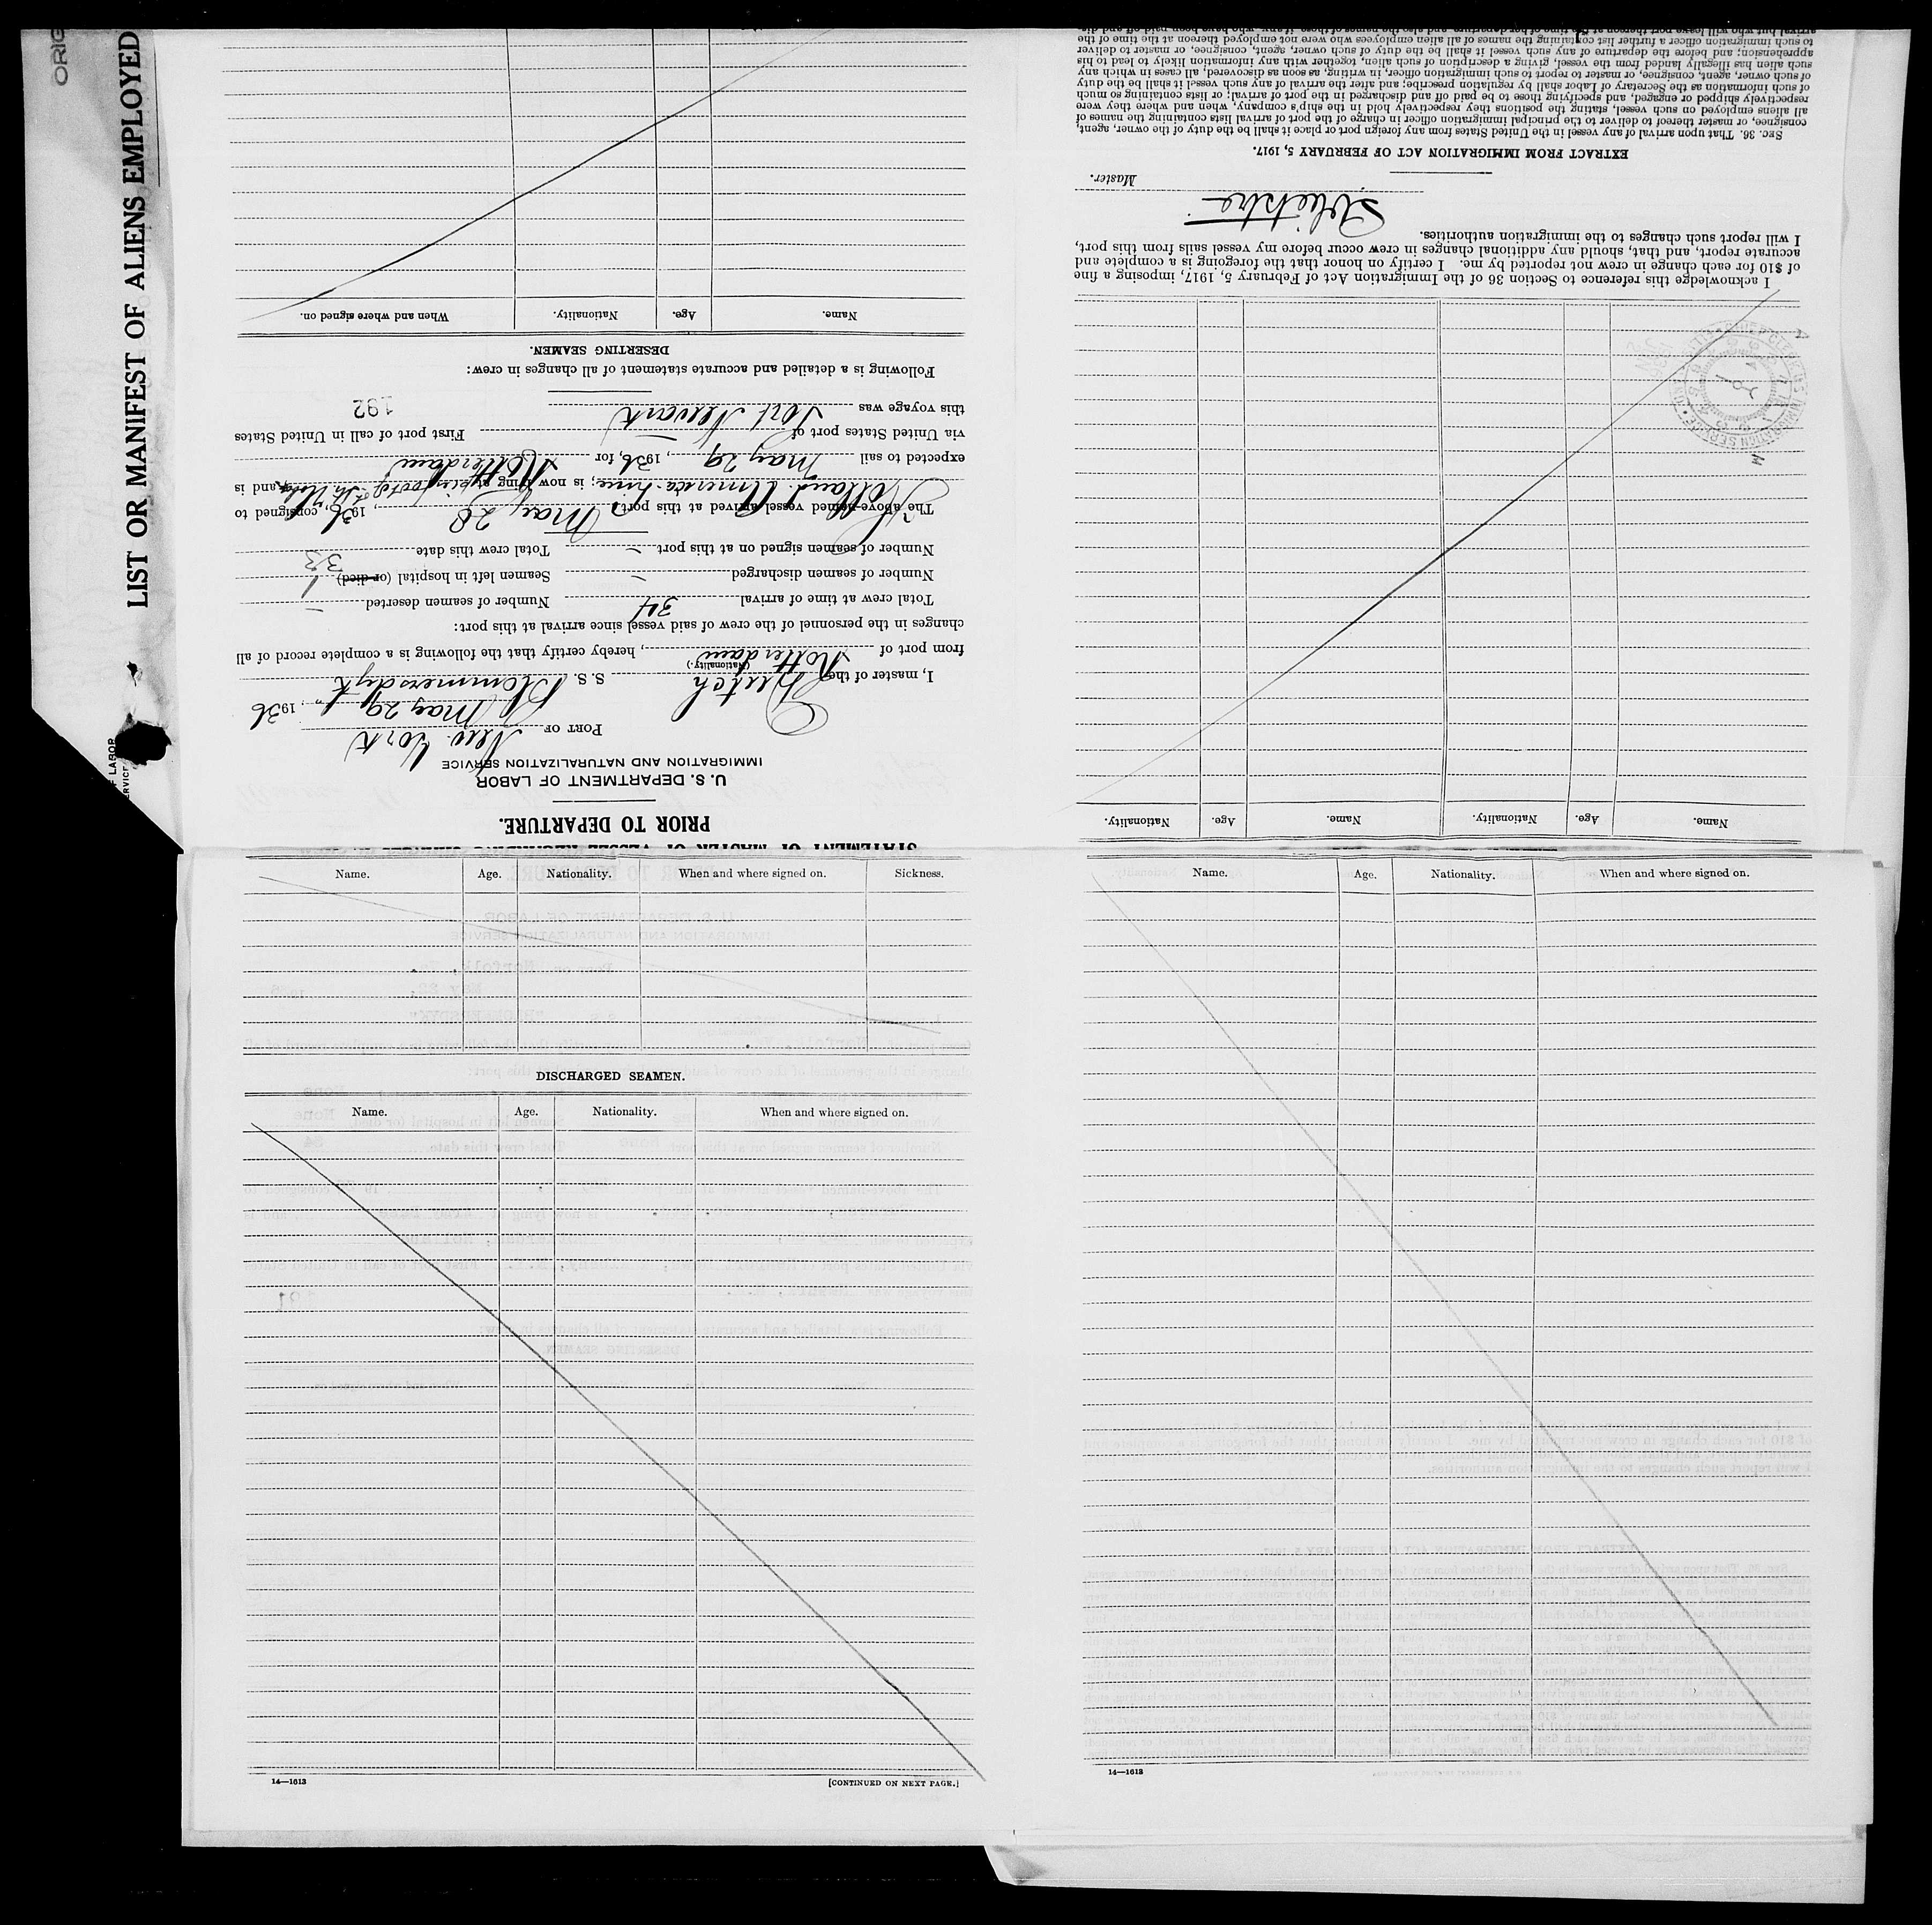 ORIG
LIST OR MANIFEST OF ALIENS EMPLOYED
STATEMENT OF MASTER OF VESSEL REGARDING CHANGES IN CREW
PRIOR TO DEPARTURE.
U. S. DEPARTMENT OF LABOR
IMMIGRATION AND NATURALIZATION SERVICE
PORT OF New York
May 29, 1936
I, master of the Dutch S. S. "Blommersdyk"
(Nationality.)
from port of Rotterdam, hereby certify that the following is a complete record of all
changes in the personnel of the crew of said vessel since arrival at this port:
Total crew at time of arrival 34 Number of seamen deserted –
Number of seamen discharged – Seamen left in hospital (or died) 1
Number of seamen signed on at this port – Total crew this date 33
The above-named vessel arrived at this port May 28, 1936, consigned to
Holland America Line; is now lying at foot of and is
expected to sail May 29, 1936, for Rotterdam
via United States port of – First port of call in United States
this voyage was Port Newark
192
Following is a detailed and accurate statement of all changes in crew:
DESERTING SEAMEN.
Name. Age. Nationality. When and where signed on.
Name. Age. Nationality. Name. Age. Nationality.
I acknowledge this reference to Section 36 of the Immigration Act of February 5, 1917, imposing a fine
of $10 for each change in crew not reported by me. I certify on honor that the foregoing is a complete and
accurate report, and that, should any additional changes in crew occur before my vessel sails from this port,
I will report such changes to the immigration authorities.
Master.
EXTRACT FROM IMMIGRATION ACT OF FEBRUARY 5, 1917.
SEC. 36. That upon arrival of any vessel in the United States from any foreign port or place it shall be the duty of the owner, agent,
consignee, or master thereof to deliver to the principal immigration officer in charge of the port of arrival lists containing the names of
all aliens employed on such vessel, stating the positions they respectively hold in the ship's company, when and where they were
respectively shipped or engaged, and specifying those to be paid off and discharged in the port of arrival; or lists containing so much
of such information as the Secretary of Labor shall by regulation prescribe; and after the arrival of any such vessel it shall be the duty
of such owner, agent, consignee, or master to report to such immigration officer, in writing, as soon as discovered, all cases in which any
such alien has illegally landed from the vessel, giving a description of such alien, together with any information likely to lead to his
apprehension; and before the departure of any such vessel it shall be the duty of such owner, agent, consignee, or master to deliver
to such immigration officer a further list containing the names of all alien employees who were not employed thereon at the time of the
arrival but who will leave port thereon at the time of her departure, and also the names of those, if any, who have been paid off and dis-
Name. Age. Nationality. When and where signed on. Sickness.
DISCHARGED SEAMEN.
Name. Age. Nationality. When and where signed on.
14—1613 [CONTINUED ON NEXT PAGE.]
Name. Age. Nationality. When and where signed on.
14—1613